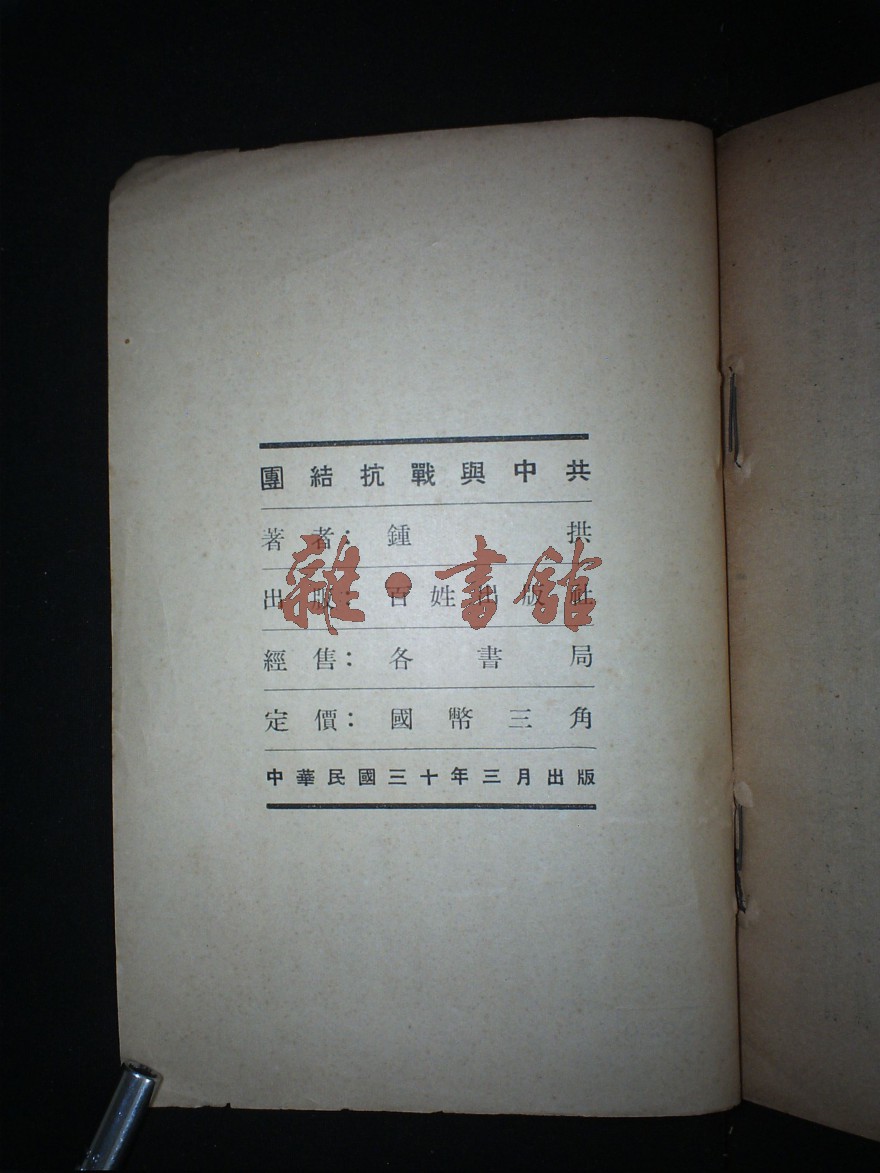 團結抗戰與中共
著者：鍾拱
出版：百姓出版社
經售：各書局
定價：國幣三角
中華民國三十年三月出版
雜·書館